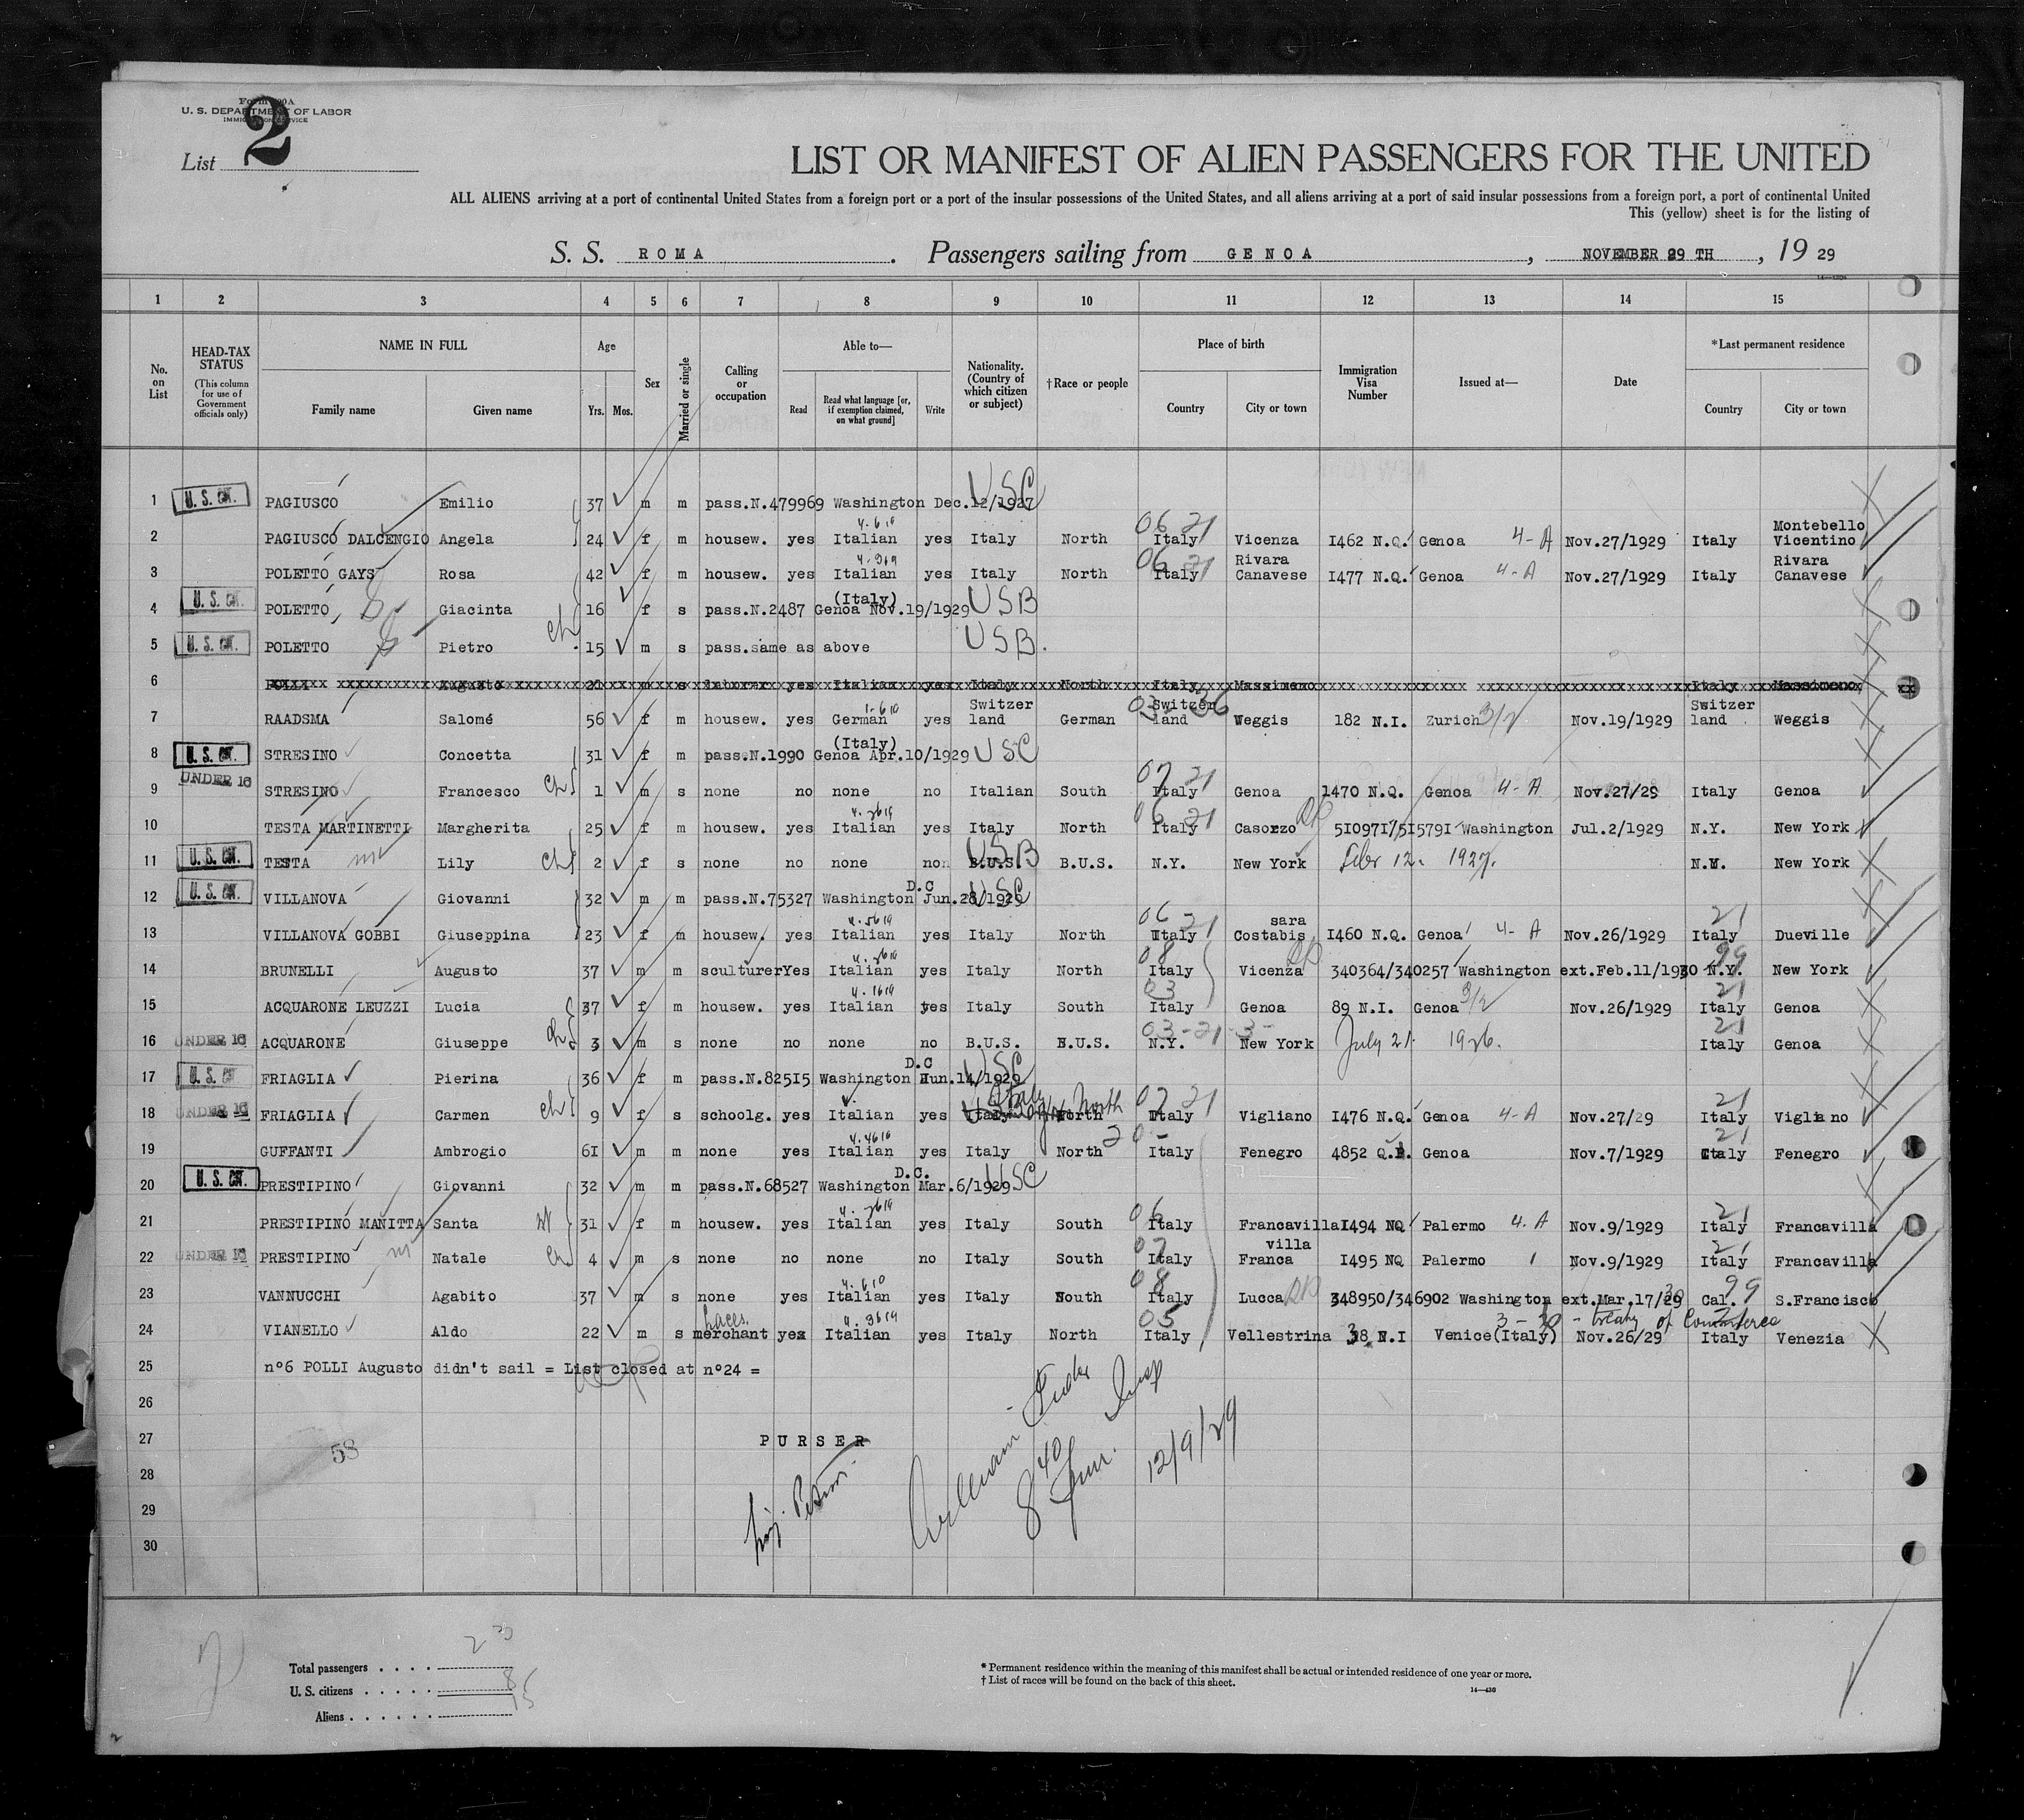 Form 500A
U. S. DEPARTMENT OF LABOR
IMMIGRATION SERVICE
List 2
LIST OR MANIFEST OF ALIEN PASSENGERS FOR THE UNITED
ALL ALIENS arriving at a port of continental United States from a foreign port or a port of the insular possessions of the United States, and all aliens arriving at a port of said insular possessions from a foreign port, a port of continental United
This (yellow) sheet is for the listing of
S. S. ROMA. Passengers sailing from GENOA, NOVEMBER 29 TH, 19 29
1 2 3 4 5 6 7 8 9 10 11 12 13 14 15
No. on List
HEAD-TAX STATUS (This column for use of Government officials only)
NAME IN FULL Family name Given name
Age Yrs. Mos.
Sex
Married or single
Calling or occupation
Able to— Read Read what language [or, if exemption claimed, on what ground] Write
Nationality. (Country of which citizen or subject)
†Race or people
Place of birth Country City or town
Immigration Visa Number
Issued at—
Date
*Last permanent residence Country City or town
1 U.S. CIT. PAGIUSCO Emilio 37 m m pass.N.479969 Washington Dec.12/1927 USC
2 PAGIUSCO DALCENGIO Angela 24 f m housew. yes Italian yes Italy North 06 21 Italy Vicenza 1462 N.Q. Genoa 4-A Nov.27/1929 Italy Montebello Vicentino
3 POLETTO GAYS Rosa 42 f m housew. yes Italian yes Italy North 06 21 Italy Rivara Canavese 1477 N.Q. Genoa 4-A Nov.27/1929 Italy Rivara Canavese
4 U.S. CIT. POLETTO Giacinta 16 f s pass.N.2487 Genoa (Italy) Nov.19/1929 USB
5 U.S. CIT. POLETTO Pietro ch 15 m s pass.same as above USB.
6 POLLI Augusto 21 m s laborer yes Italian yes Italy North Italy Massimeno Italy Massimeno
7 RAADSMA Salomé 56 f m housew. yes German yes Switzerland German Switzerland Weggis 182 N.I. Zurich 3/2 Nov.19/1929 Switzerland Weggis
8 U.S. CIT. STRESINO Concetta 31 f m pass.N.1990 Genoa (Italy) Apr.10/1929 USC
9 UNDER 16 STRESINO Francesco ch 1 m s none no none no Italian South 07 21 Italy Genoa 1470 N.Q. Genoa 4-A Nov.27/29 Italy Genoa
10 TESTA MARTINETTI Margherita 25 f m housew. yes Italian yes Italy North 06 21 Italy Casorzo 510971/515791 Washington Jul.2/1929 N.Y. New York
11 U.S. CIT. TESTA Lily ch 2 f s none no none non B.U.S. USB B.U.S. N.Y. New York 12. 1927. N.Y. New York
12 U.S. CIT. VILLANOVA Giovanni 32 m m pass.N.75327 Washington D.C Jun.28/1929 USC
13 VILLANOVA GOBBI Giuseppina 23 f m housew. yes Italian yes Italy North 06 21 Italy Costabissara 1460 N.Q. Genoa 4-A Nov.26/1929 21 Italy Dueville
14 BRUNELLI Augusto 37 m m sculturer Yes Italian yes Italy North 08 Italy Vicenza 340364/340257 Washington ext.Feb.11/1930 99 N.Y. New York
15 ACQUARONE LEUZZI Lucia 37 f m housew. yes Italian yes Italy South 03 Italy Genoa 89 N.I. Genoa 3/2 Nov.26/1929 21 Italy Genoa
16 UNDER 16 ACQUARONE Giuseppe ch 3 m s none no none no B.U.S. B.U.S. 03-21-3- N.Y. New York July 21. 1926. 21 Italy Genoa
17 U.S. CIT. FRIAGLIA Pierina 36 f m pass.N.82515 Washington D.C Jun.14/1929 USC
18 UNDER 16 FRIAGLIA Carmen ch 9 f s schoolg. yes Italian yes Italy North 07 21 Italy Vigliano 1476 N.Q. Genoa 4-A Nov.27/29 21 Italy Vigliano
19 GUFFANTI Ambrogio 61 m m none yes Italian yes Italy North Italy Fenegro 4852 Q. Genoa Nov.7/1929 21 Italy Fenegro
20 U.S. CIT. PRESTIPINO Giovanni 32 m m pass.N.68527 Washington D.C. Mar.6/1929 USC
21 PRESTIPINO MANITTA Santa 31 f m housew. yes Italian yes Italy South 06 Italy Francavilla 1494 NQ Palermo 4.A Nov.9/1929 21 Italy Francavilla
22 UNDER 16 PRESTIPINO Natale ch 4 m s none no none no Italy South 07 Italy Francavilla 1495 NQ Palermo Nov.9/1929 21 Italy Francavilla
23 VANNUCCHI Agabito 37 m s none yes Italian yes Italy South 08 Italy Lucca 348950/346902 Washington ext.Mar.17/29 30 99 Cal. S.Francisco
24 VIANELLO Aldo 22 m s Laces. merchant yes Italian yes Italy North 05 Italy Vellestrina 38 N.I Venice(Italy) Nov.26/29 treaty of Commerce Italy Venezia
25 n°6 POLLI Augusto didn't sail = List closed at n°24 =
26
27 PURSER
58
28
29
30
William
8 40
12/9/29
Total passengers . . . . 23
U. S. citizens . . . . . 8
Aliens . . . . . . 15
* Permanent residence within the meaning of this manifest shall be actual or intended residence of one year or more.
† List of races will be found on the back of this sheet.
14—430